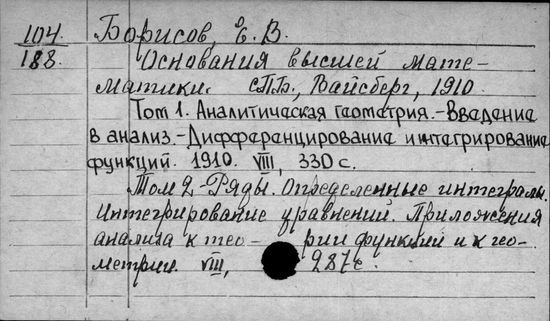 104. Борисов, Е. В.
188. Основания высшей мате-
матики. СПБ., Вайсберг, 1910.
Том 1. Аналитическая геометрия.-Введение
в анализ.-Дифференцирование интегрирование
функций. 1910. VIII, 330 с.
Том 2-Ряды. Определенные интегралы.
Интегрирование уравнений. Приложения
анализа к тео- рии функций и к гео-
метрии. VIII, 287с.